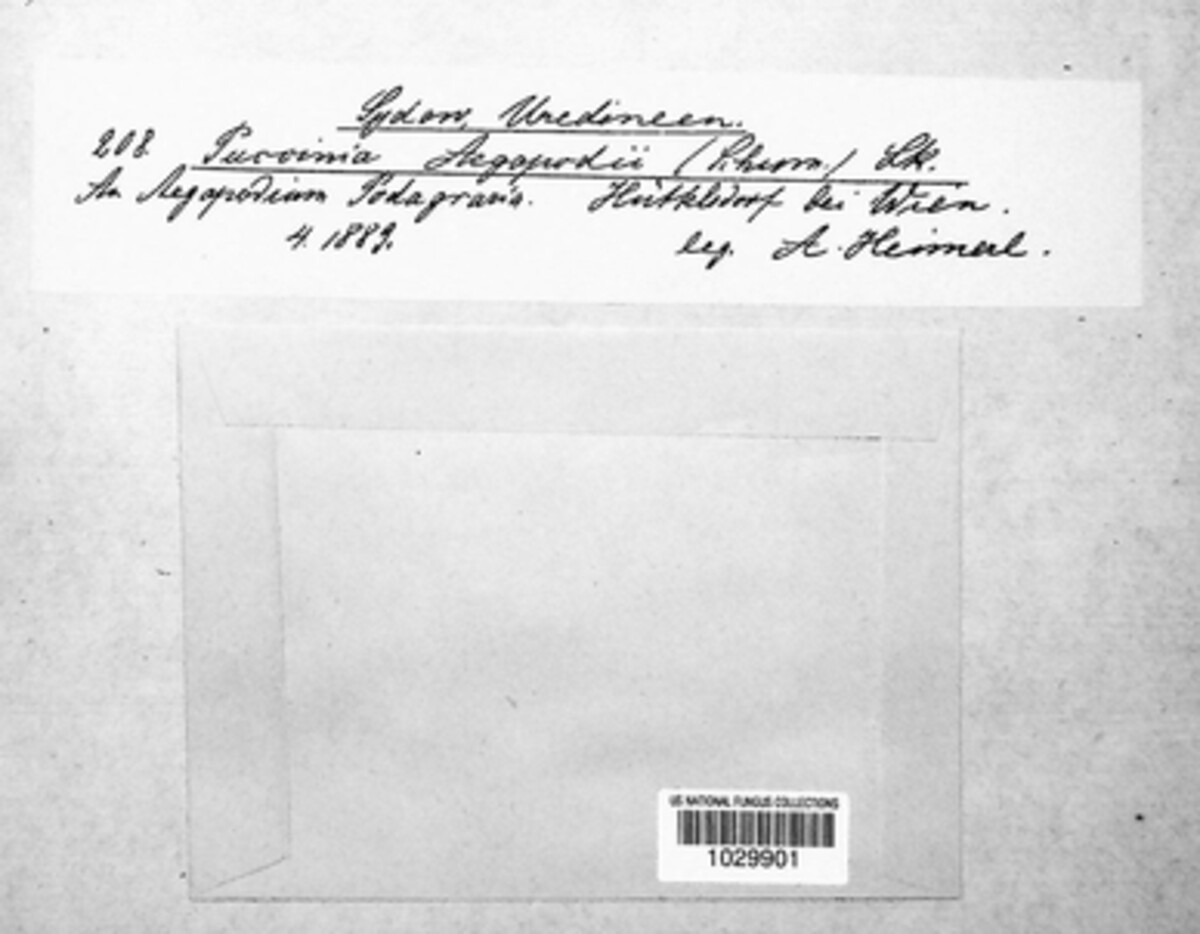 Sydow, Uredineen.
208. Puccinia Aegopodii (Schum.) Lk.
An Aegopodium Podagraria. Hütteldorf bei Wien.
4. 1889. leg. A. Heimerl.
US NATIONAL FUNGUS COLLECTIONS
1029901